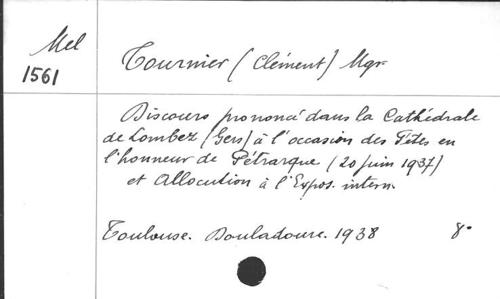 Mel
1561
Tournier (Clément) Mgr.
Discours prononcé dans la Cathédrale
de Lombez (Gers) à l'occasion des Fêtes en
l'honneur de Pétrarque (20 juin 1937)
et Allocution à l'Expos. intern.
Toulouse. Douladoure. 1938 8°